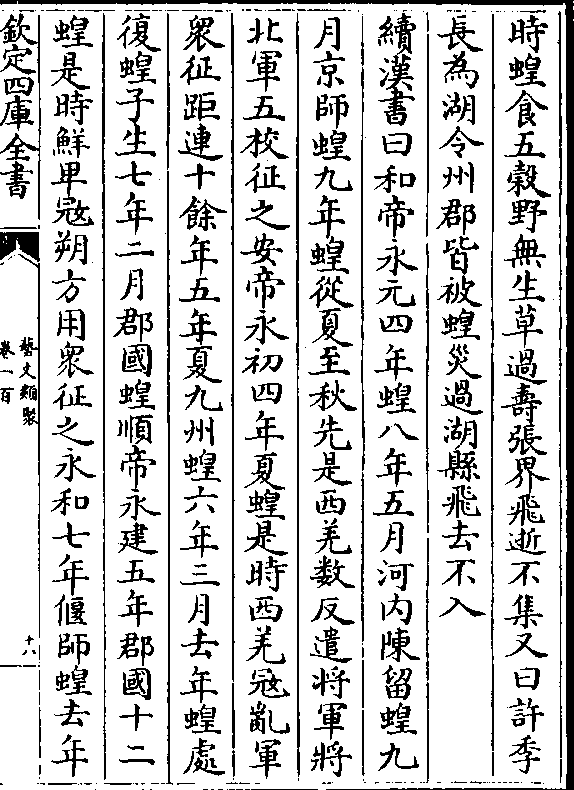 時蝗食五穀野無生草過壽張界飛逝不集又曰許季
長為湖令州郡皆被蝗災過湖縣飛去不入
續漢書曰和帝永元四年蝗八年五月河内陳留蝗九
月京師蝗九年蝗從夏至秋先是西羌数反遣將軍將
北軍五校征之安帝永初四年夏蝗是時西羌㓂亂軍
衆征距連十餘年五年夏九州蝗六年三月去年蝗處
復蝗子生七年二月郡國蝗順帝永建五年郡國十二
蝗是時鮮卑㓂朔方用衆征之永和七年偃師蝗去年
欽定四庫全書
藝文類聚
卷一百
十六